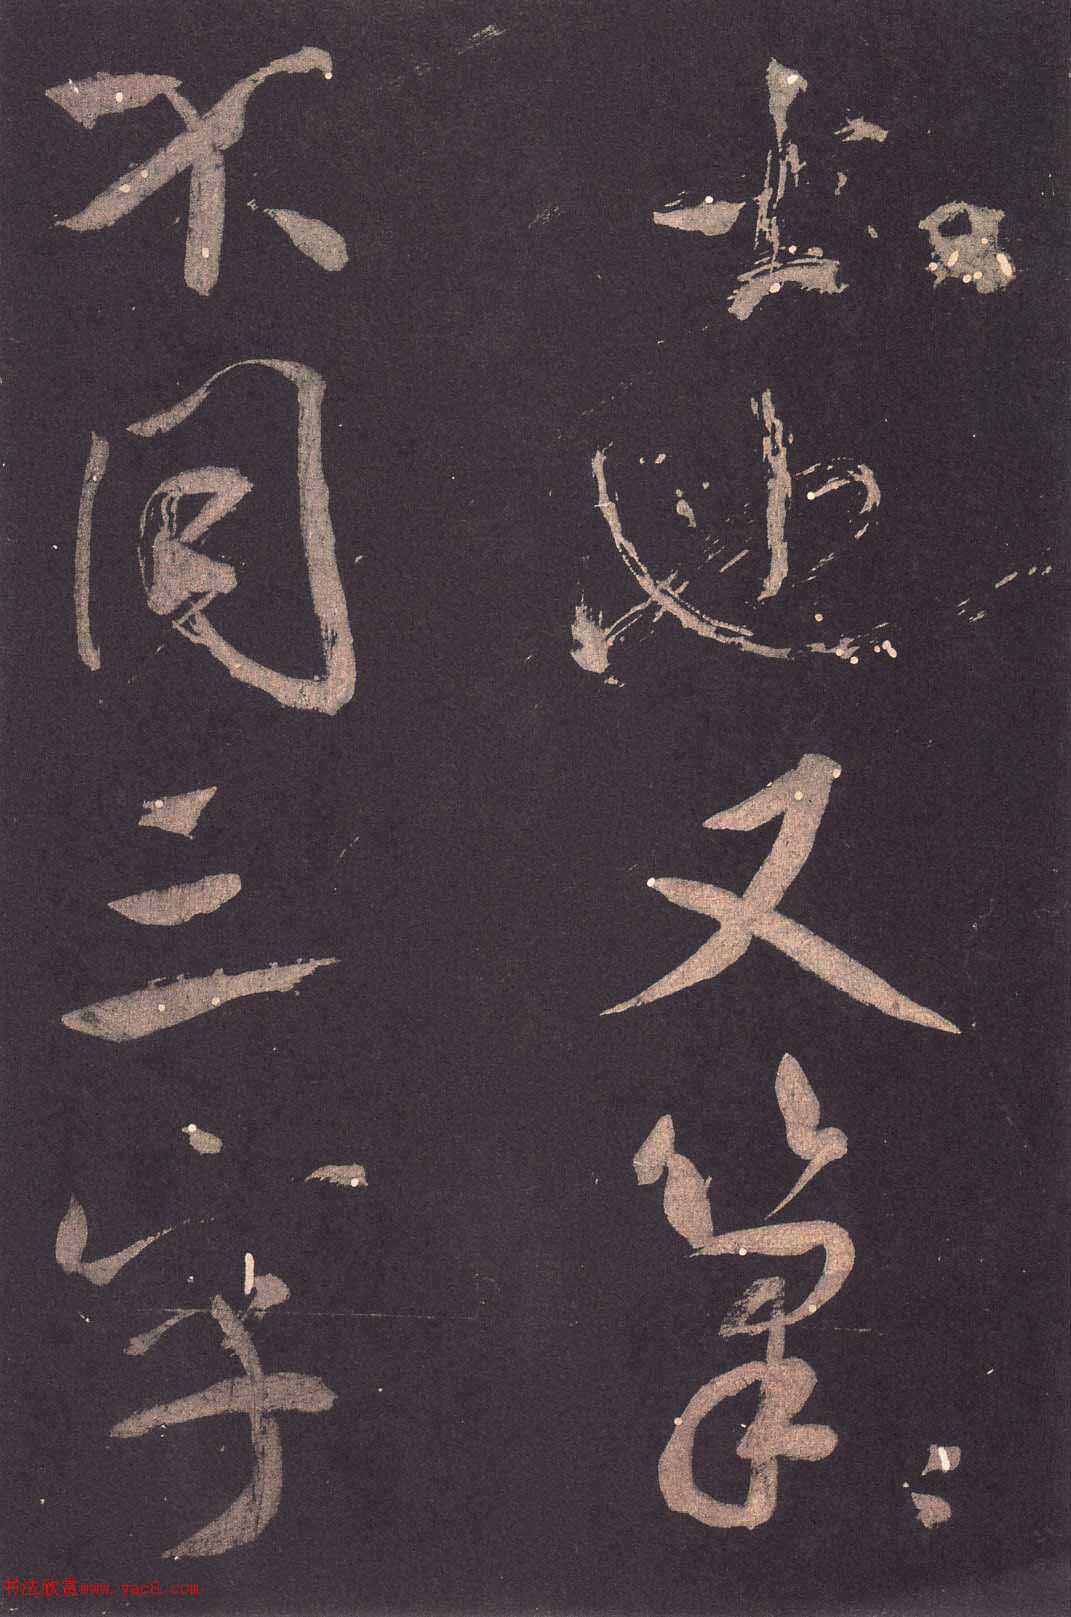 也又筆
不同三字
书法欣赏www.yac8.com